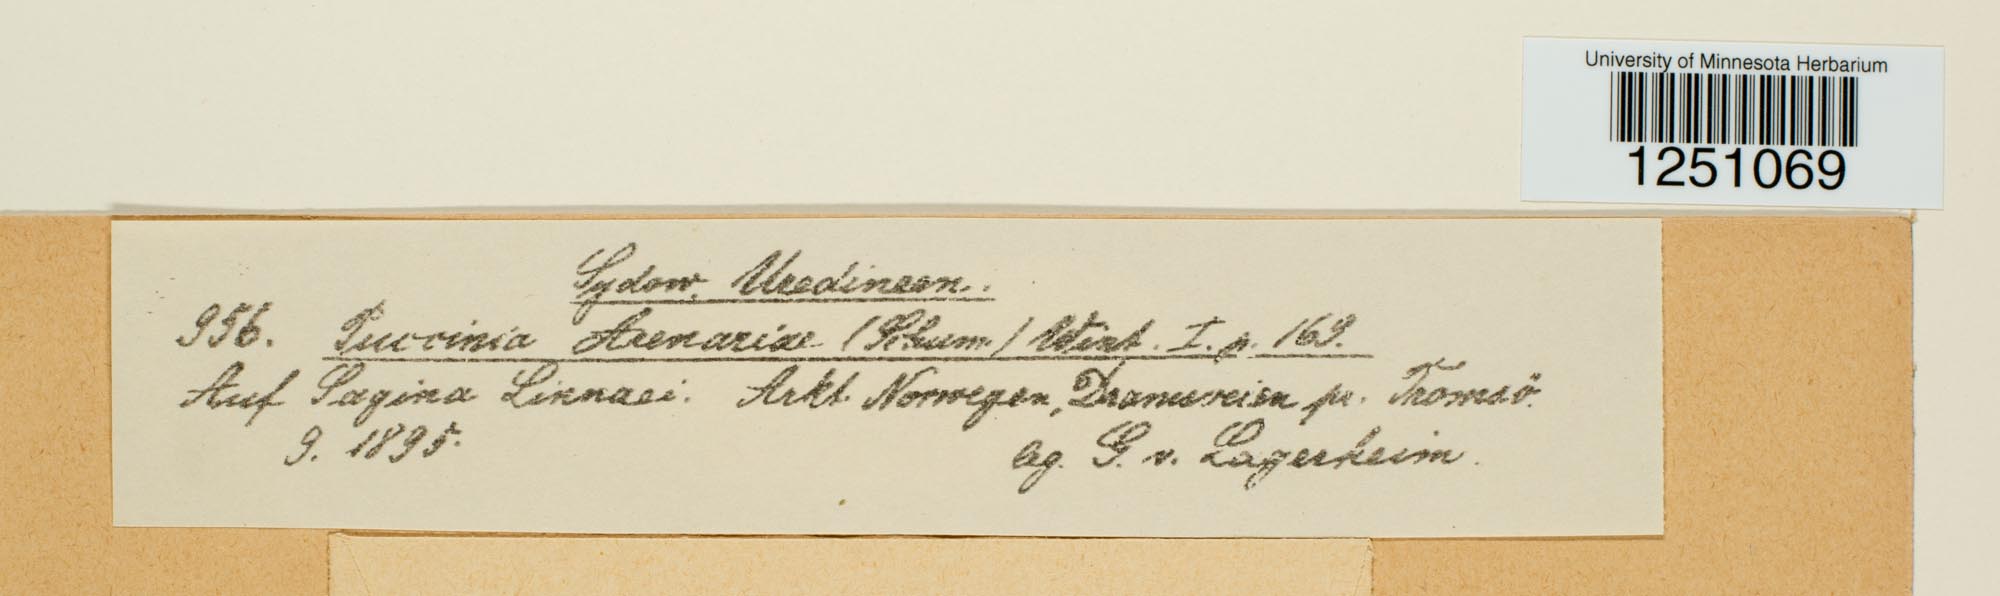 University of Minnesota Herbarium
1251069
Sydow, Uredineen.
956. Puccinia Arenariae (Schum.) Wint. I. p. 169.
Auf Sagina Linnaei. Arkt. Norwegen, Dramsveien pr. Tromsö.
9. 1895.
leg. G. v. Lagerheim.